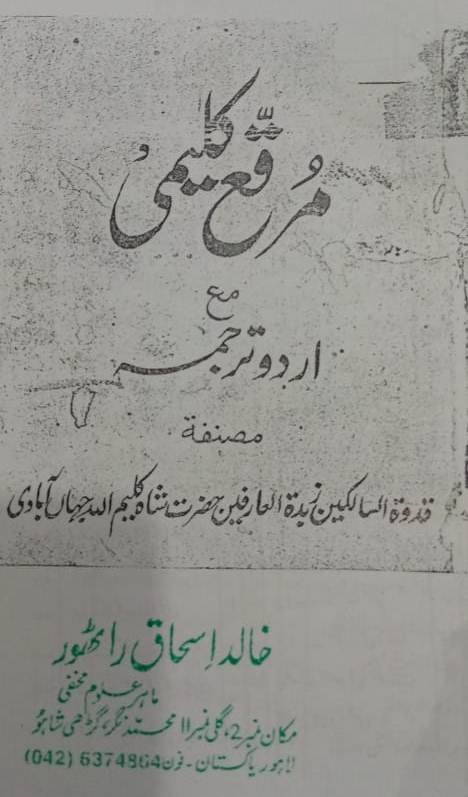 مُرقّع کلیمی
مع
اردو ترجمہ
مصنفة
قدوة السالکین زبدة العارفین حضرت شاہ کلیم اللہ جہاں آبادی
خالد اسحاق راٹھور
ماہر علوم مخفی
مکان نمبر 2، گلی نمبر 11 محمد نگر، گڑھی شاہو
لاہور پاکستان - فون 6374864 (042)